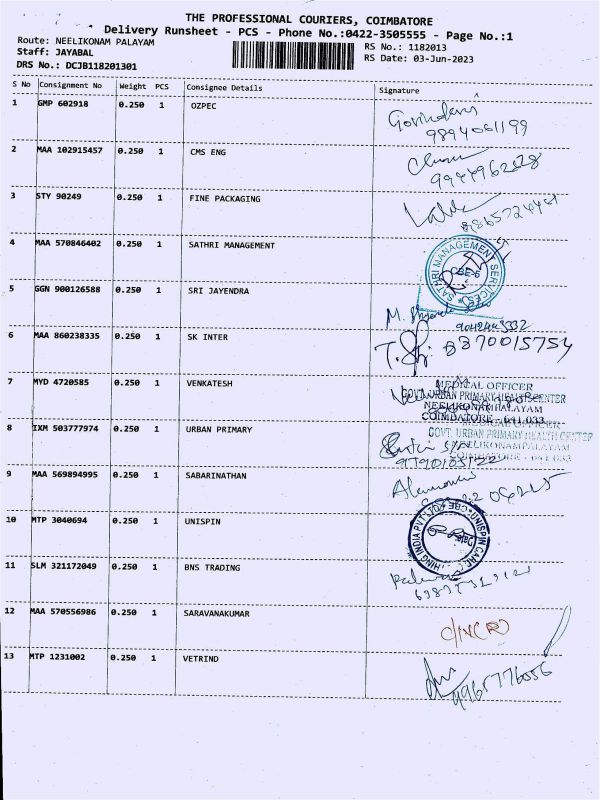 THE PROFESSIONAL COURIERS, COIMBATORE
Delivery Runsheet - PCS - Phone No.:0422-3505555 - Page No.:1
Route: NEELIKONAM PALAYAM
Staff: JAYABAL
DRS No.: DCJB118201301
RS No.: 1182013
RS Date: 03-Jun-2023
S No Consignment No Weight PCS Consignee Details Signature
1 GMP 602918 0.250 1 OZPEC
9894061199
2 MAA 102915457 0.250 1 CMS ENG
3 STY 90249 0.250 1 FINE PACKAGING
4 MAA 570846402 0.250 1 SATHRI MANAGEMENT
SATHRI MANAGEMENT SERVICES
CBE-6
5 GGN 900126588 0.250 1 SRI JAYENDRA
6 MAA 860238335 0.250 1 SK INTER
8870015754
7 MYD 4720585 0.250 1 VENKATESH
MEDICAL OFFICER
GOVT. URBAN PRIMARY HEALTH CENTER
NEELIKONAMPALAYAM
COIMBATORE - 641 033
8 IXM 503777974 0.250 1 URBAN PRIMARY
MEDICAL OFFICER
GOVT. URBAN PRIMARY HEALTH CENTER
NEELIKONAMPALAYAM
COIMBATORE - 641 033
9 MAA 569894995 0.250 1 SABARINATHAN
10 MTP 3040694 0.250 1 UNISPIN
11 SLM 321172049 0.250 1 BNS TRADING
12 MAA 570556986 0.250 1 SARAVANAKUMAR
13 MTP 1231002 0.250 1 VETRIND
9965776056